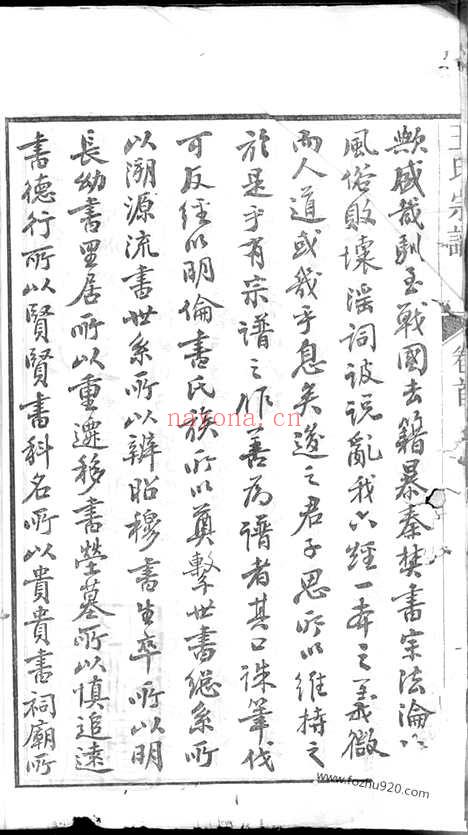 王氏宗譜
卷首
歟盛哉馴至戰國去籍暴秦焚書宗法淪亡
風俗敗壞淫詞詖說亂我六經一本之義微
而人道或幾乎息矣後之君子思所以維持之
於是乎有宗譜之作善為譜者其口誅筆伐
可反經以明倫書氏族所以奠繫世書總系所
以溯源流書世系所以辨昭穆書生卒所以明
長幼書里居所以重遷移書塋墓所以慎追遠
書德行所以賢賢書科名所以貴貴書祠廟所
nayona.cn
www.fozhu920.com